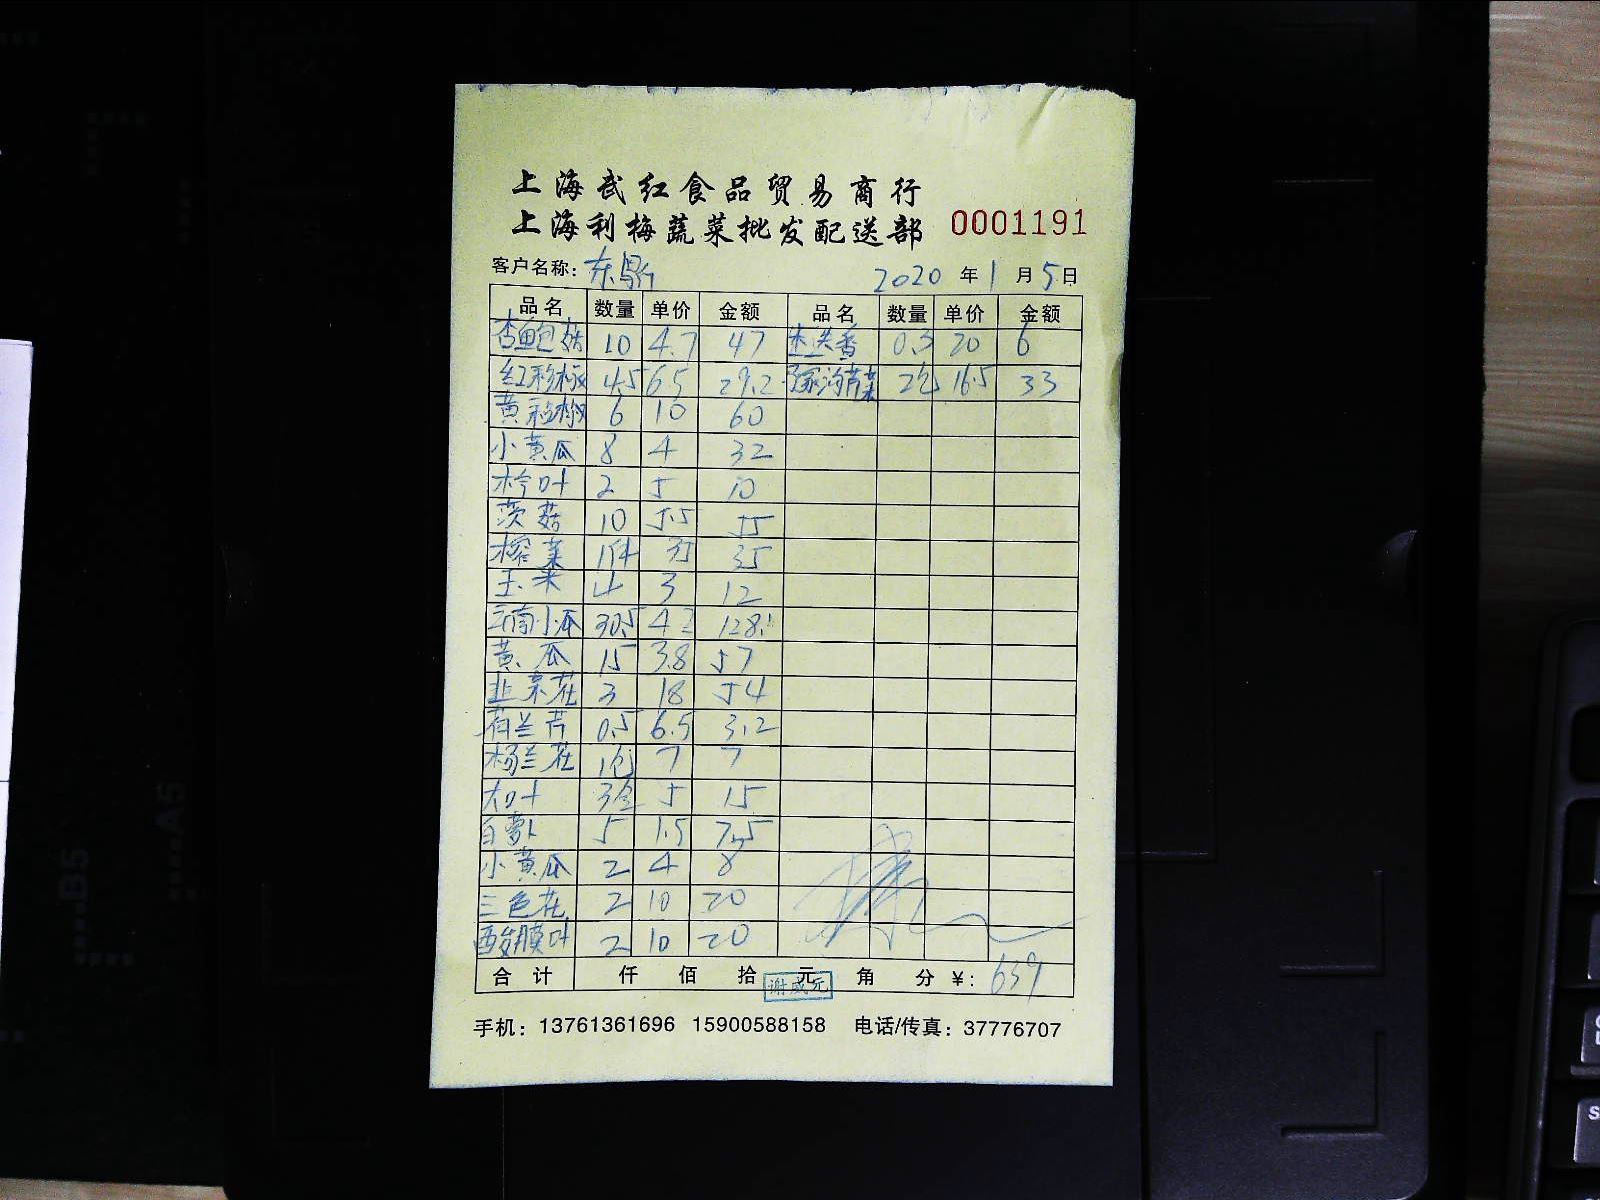 上海武红食品贸易商行
上海利梅蔬菜批发配送部 0001191
客户名称: 东 2020 年 1 月 5 日
品名 数量 单价 金额 品名 数量 单价 金额
杏鲍菇 10 4.7 47 迷迭香 0.3 20 6
红彩椒 4.5 6.5 29.2 芹菜 2包 16.5 33
黄彩椒 6 10 60
小黄瓜 8 4 32
柠叶 2 5 10
茨菇 10 5.5 55
榨菜 1件 35 35
玉米 4 3 12
云南小瓜 30.5 4.2 128.1
黄瓜 15 3.8 57
韭菜花 3 18 54
荷兰芹 0.5 6.5 3.2
杨兰花 1包 7 7
大叶 3盒 5 15
白萝卜 5 1.5 7.5
小黄瓜 2 4 8
三色花 2 10 20
酸膜叶 2 10 20
合计 仟 佰 拾 元 角 分 ¥: 639
谢成元
手机: 13761361696 15900588158 电话/传真: 37776707
B5
A5